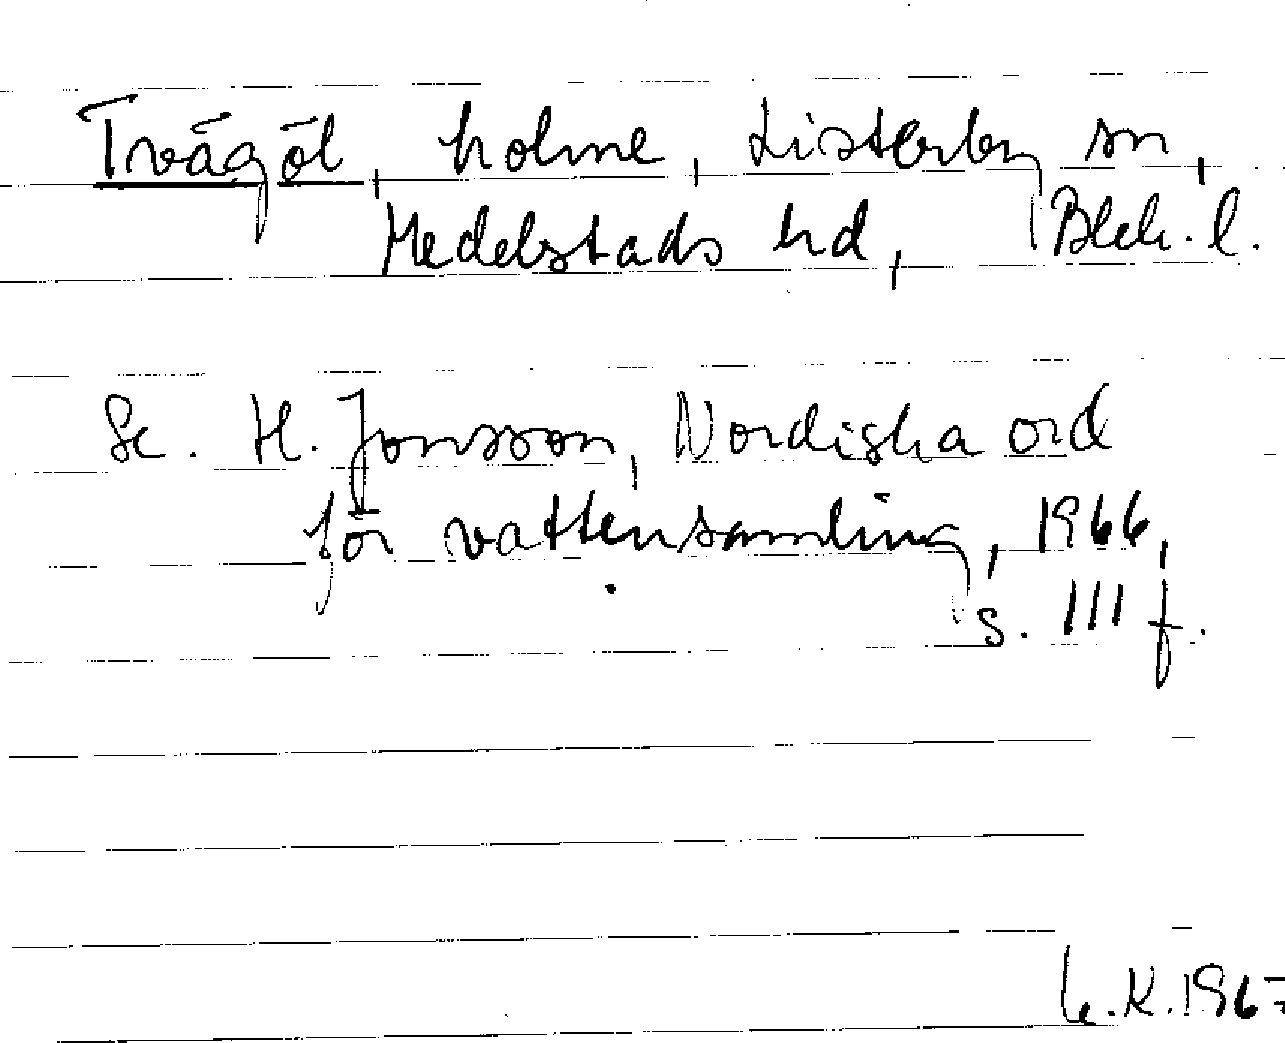 Trvägöl, holme, Listerby sn,
Medelstads hd, Blek. l.
Se. H. Jonsson, Nordiska ord
för vattensamling, 1966,
s. 111 f.
K. 1967